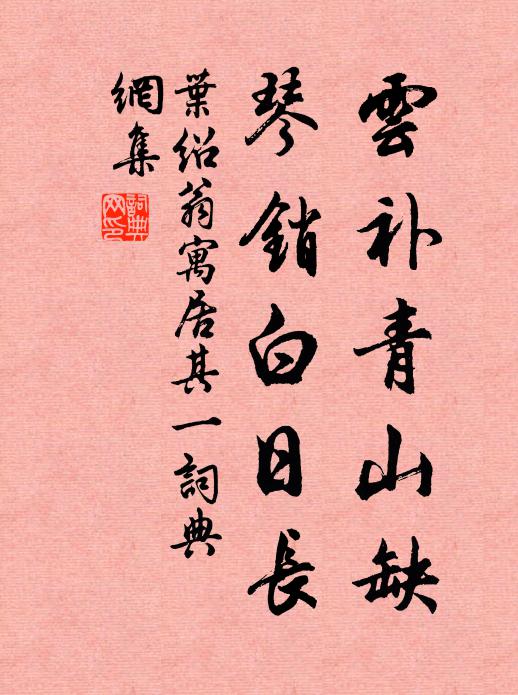 雲补青山缺
琴銷白日長
葉紹翁寓居其一詞典
網集
詞典
网印